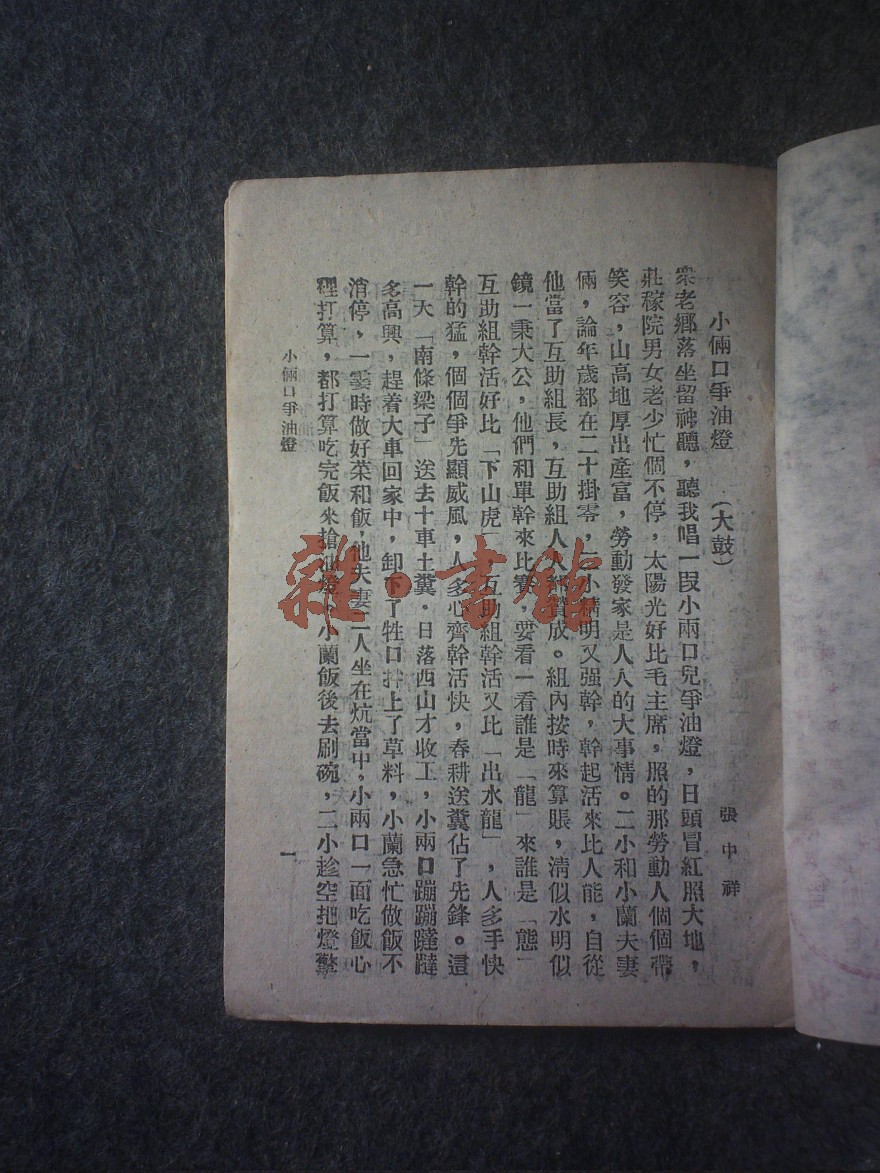 小倆口爭油燈 (大鼓)
張中祥
衆老鄉落坐留神聽，聽我唱一段小兩口兒爭油燈，日頭冒紅照大地，
莊稼院男女老少忙個不停，太陽光好比毛主席，照的那勞動人個個帶
笑容，山高地厚出產富，勞動發家是人人的大事情。二小和小蘭夫妻
倆，論年歲都在二十掛零，二小精明又强幹，幹起活來比人能，自從
他當了互助組長，互助組人人都贊成。組內按時來算賬，清似水明似
鏡一秉大公，他們和單幹來比賽，要看一看誰是「龍」來誰是「態」
互助組幹活好比「下山虎」互助組幹活又比「出水龍」，人多手快
幹的猛，個個爭先顯威風，人多心齊幹活快，春耕送糞佔了先鋒。這
一天「南條梁子」送去十車土糞．日落西山才收工，小兩口蹦蹦躂躂
多高興，趕着大車回家中，卸下了牲口拌上了草料，小蘭急忙做飯不
消停，一霎時做好菜和飯，他夫妻二人坐在炕當中，小兩口一面吃飯心
裡打算，都打算吃完飯來搶油燈，小蘭飯後去刷碗，二小趁空把燈擎
小倆口爭油燈
一
雜·書館